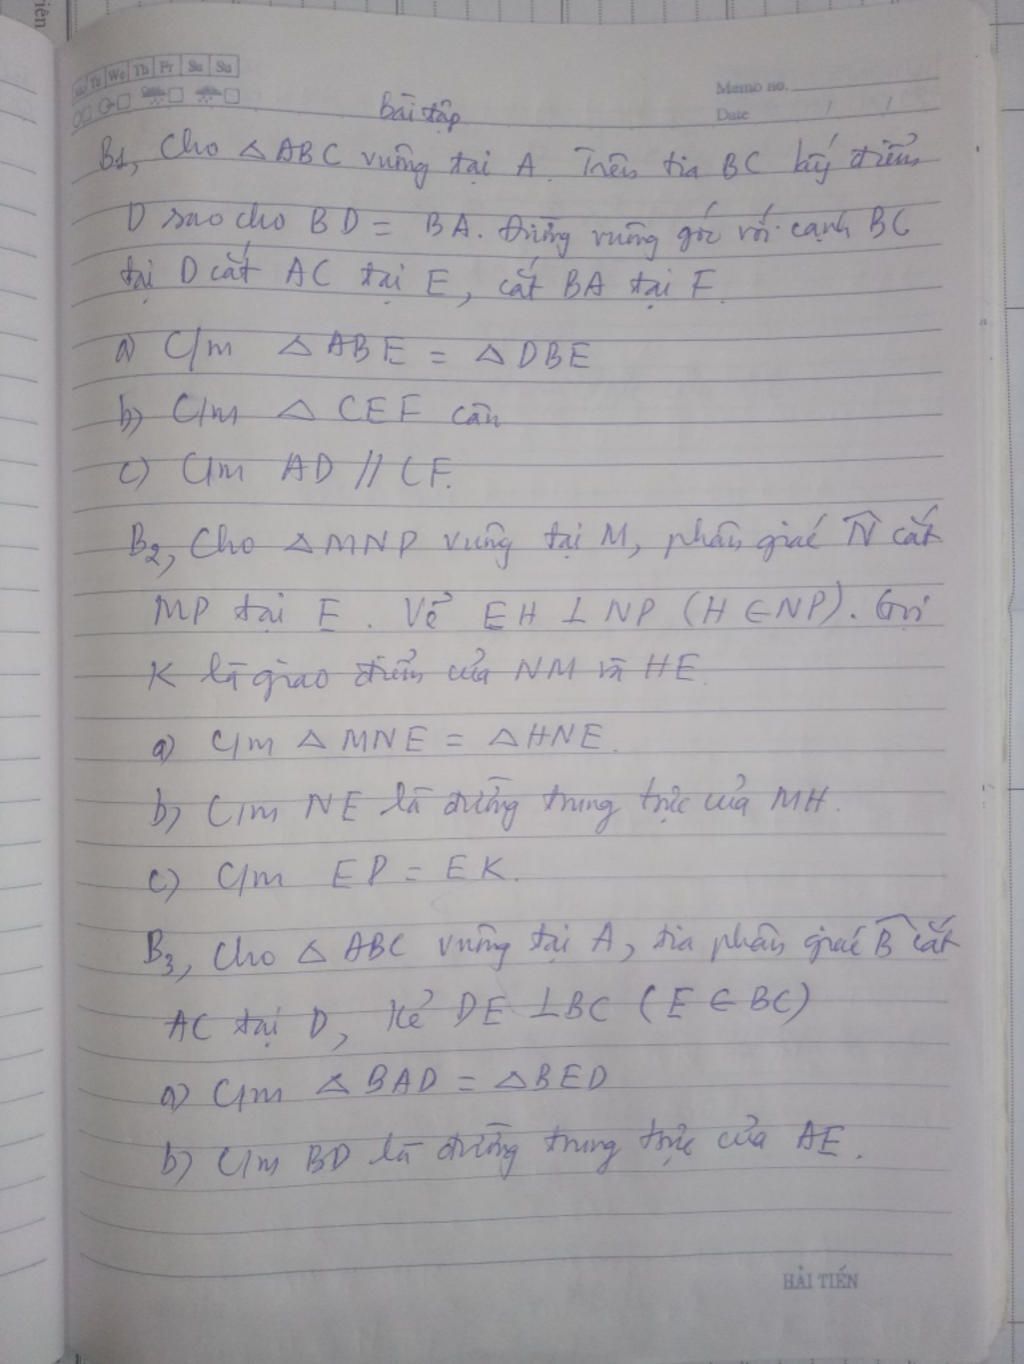 iên
Mo Tu We Th Fr Sa Su
Memo no.
Date / /
Bài tập
B1, Cho △ABC vuông tại A. Trên tia BC lấy điểm
D sao cho BD = BA. Đường vuông góc với cạnh BC
tại D cắt AC tại E, cắt BA tại F.
a) C/m △ABE = △DBE
b) C/m △CEF cân
c) C/m AD // CF.
B2, Cho △MNP vuông tại M, phân giác N̂ cắt
MP tại E. Vẽ EH ⊥ NP (H ∈ NP). Gọi
K là giao điểm của NM và HE.
a) C/m △MNE = △HNE.
b) C/m NE là đường trung trực của MH.
c) C/m EP = EK.
B3, Cho △ABC vuông tại A, tia phân giác B̂ cắt
AC tại D, kẻ DE ⊥ BC (E ∈ BC)
a) C/m △BAD = △BED
b) C/m BD là đường trung trực của AE.
HẢI TIẾN